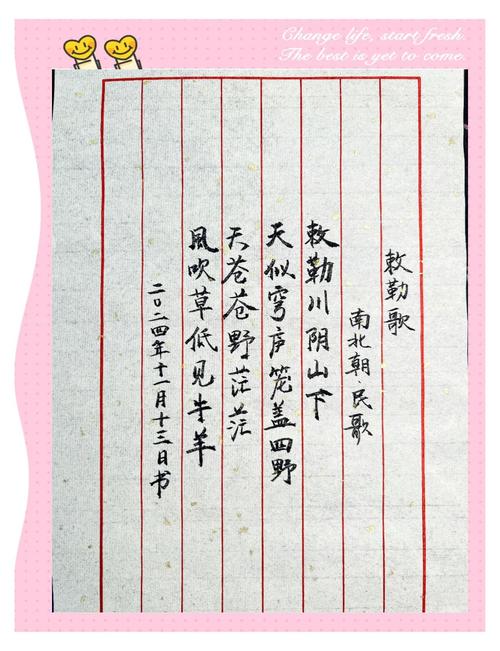 Change life, start fresh.
The best is yet to come.
敕勒歌
南北朝·民歌
敕勒川阴山下
天似穹庐笼盖四野
天苍苍野茫茫
風吹草低见牛羊
二〇二四年十一月十三日书